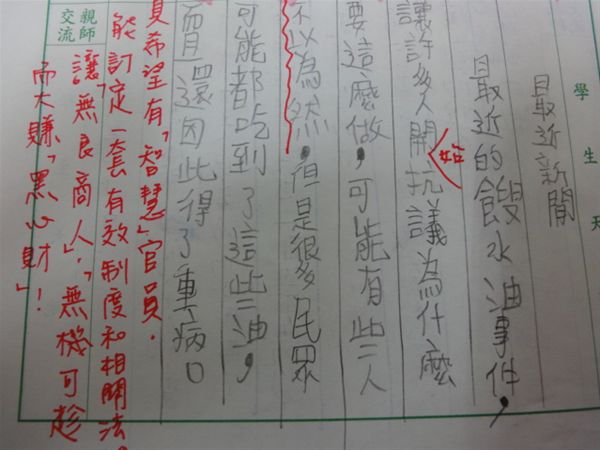 學生天
最近新聞
最近的餿水油事件，
讓許多人開抗議為什麼
始
要這麼做，可能有些人
不以為然，但是很多民眾
可能都吃到了這些油，
而且還因此得了重病。
親師交流
希望有「智慧」官員．
能訂定一套有效制度和相關法。
讓「無良商人」，「無機可趁
而大賺「黑心財」！